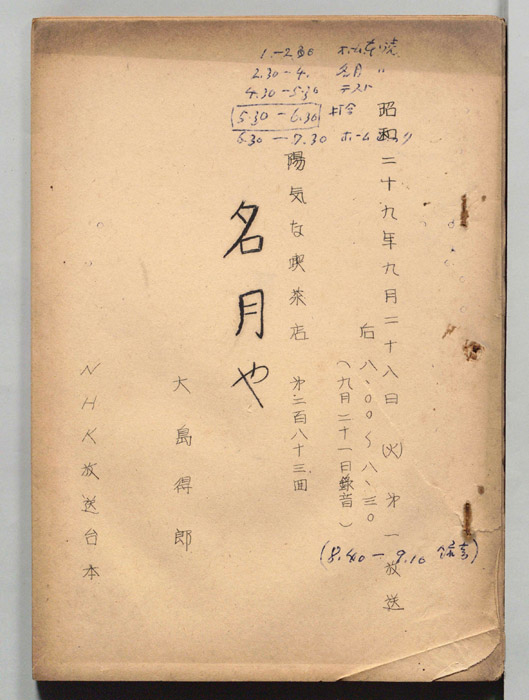 1.-2.30 ホーム本読
2.30-4. 名月 〃
4.30-5.30 テスト
5.30-6.30 打合
6.30-7.30 ホーム
昭和二十九年九月二十八日(火)第一放送
后八、〇〇〜八、三〇
(九月二十一日録音)
(8.40-9.10 録音)
陽気な喫茶店 第二百八十三回
名月や
大島得郎
NHK放送台本